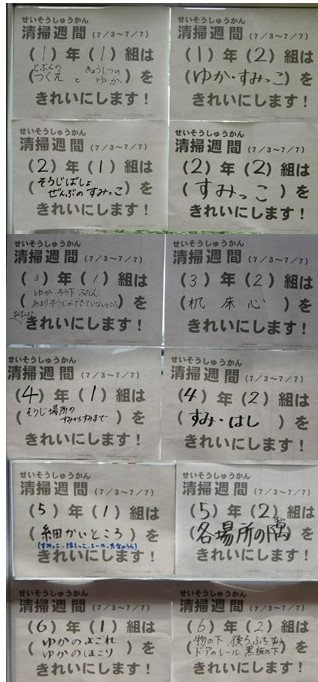 せいそうしゅうかん
清掃週間 (7/3~7/7)
(1)年(1)組は
(じぶんの つくえ と きょうしつの ゆか)を
きれいにします!
せいそうしゅうかん
清掃週間 (7/3~7/7)
(1)年(2)組は
(ゆか・すみっこ)を
きれいにします!
せいそうしゅうかん
清掃週間 (7/3~7/7)
(2)年(1)組は
(そうじばしょ
ぜんぶのすみっこ)を
きれいにします!
せいそうしゅうかん
清掃週間 (7/3~7/7)
(2)年(2)組は
(すみっこ)を
きれいにします!
せいそうしゅうかん
清掃週間 (7/3~7/7)
(3)年(1)組は
(ゆか ろう下 ふだん
あまりそうじができていないところ)を
きれいにします!
せいそうしゅうかん
清掃週間 (7/3~7/7)
(3)年(2)組は
(机 床 心)を
きれいにします!
せいそうしゅうかん
清掃週間 (7/3~7/7)
(4)年(1)組は
(そうじ場所の
すみからすみまで)を
きれいにします!
せいそうしゅうかん
清掃週間 (7/3~7/7)
(4)年(2)組は
(すみ・はし)を
きれいにします!
せいそうしゅうかん
清掃週間 (7/3~7/7)
(5)年(1)組は
(細かいところ)を
きれいにします!
せいそうしゅうかん
清掃週間 (7/3~7/7)
(5)年(2)組は
(各場所の隅)を
きれいにします!
せいそうしゅうかん
清掃週間 (7/3~7/7)
(6)年(1)組は
(ゆかのよごれ
ゆかのほこり)を
きれいにします!
せいそうしゅうかん
清掃週間 (7/3~7/7)
(6)年(2)組は
(物の下
ドアのレール 黒板の下)を
きれいにします!